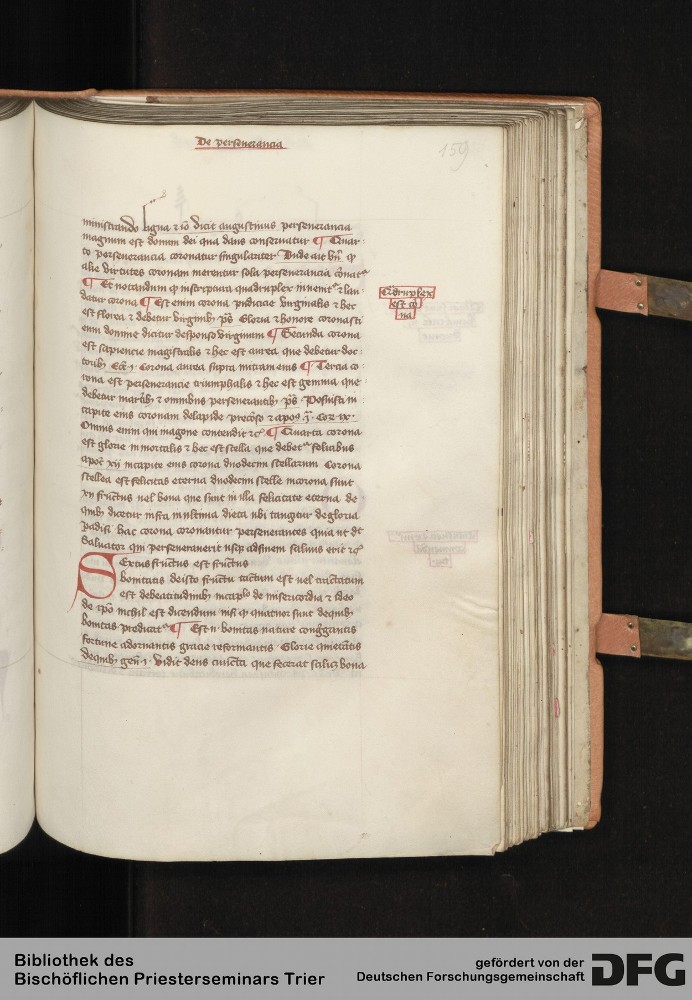 De perseverancia
159
ministrando ligna ⁊ io dicit augustinus perseverancia
magnum est donum dei qua dans conservatur ¶ Quar
to perseverancia coronatur singulariter Unde ait bn̄ ꝙ
alie virtutes coronam merentur sola perseverancia
¶ Et notandum ꝙ in scriptura quadruplex invenit᷑ ⁊ lau
datur corona ¶ Est enim corona pudicicie virginalis ⁊ hec
est florea ⁊ debetur virginibꝫ ps̄ Gloria ⁊ honore coronasti
eum domine dicitur desponso virginum ¶ Secunda corona
est sapiencie magistralis ⁊ hec est aurea que debetur doc
toribꝫ Corona aurea supra mitram eius ¶ Tercia co
rona est perseverancie triumphalis ⁊ hec est gemmea que
debetur martiribꝫ ⁊ omnibus perseverantibꝫ ps̄ Posuisti in
capite eius coronam de lapide precioso ⁊ apo9 Cor ix
Omnis enim qui in agone contendit ⁊c̄ ¶ Quarta corona
est glorie inmortalis ⁊ hec est stella que debet᷑ felicibus
apoc̄ xij in capite eius corona duodecim stellarum Corona
stellea est felicitas eterna duodecim stelle in corona sunt
xij fructus uel bona que sunt in illa felicitate eterna de
quibꝫ dicetur infra in ultima dieta ubi tangitur de gloria
padisi hac corona coronantur perseverantes quia ut dt̄
Salvator qui perseveraverit usqꝫ ad finem salvus erit ⁊c̄
Sextus fructus est fructus
bonitatis de isto fructu tactum est uel tractatum
est de beatitudinibꝫ in caplo de misericordia ⁊ ideo
de ip̄o nichil est dicendum nisi ꝙ quatuor sunt de quibꝫ
bonitas predicat᷑ ¶ Est n̄ bonitas nature
fortune adornantis gracie reformantis Glorie quietantis
de quibꝫ gen̄ 1 Vidit deus cuncta que fecerat bona
Qudruplex
est co
na
Bibliothek des
Bischöflichen Priesterseminars Trier
gefördert von der
Deutschen Forschungsgemeinschaft
DFG